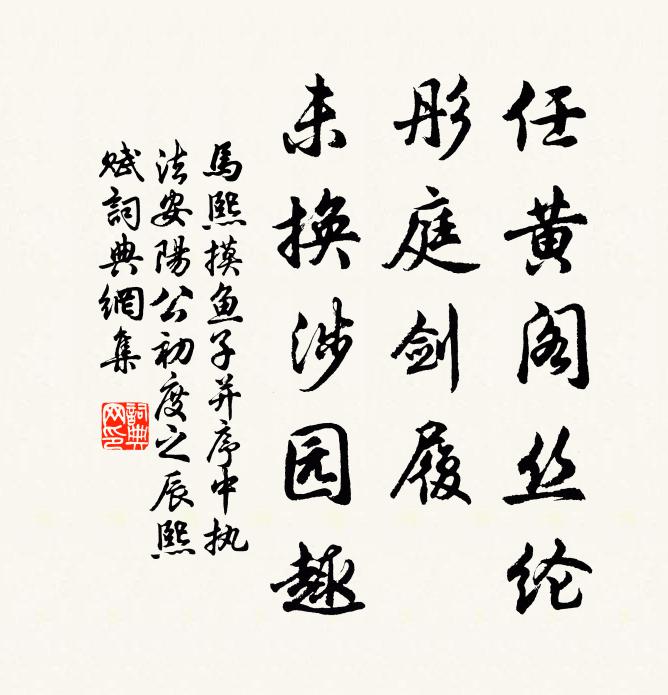 任黄阁丝纶
彤庭剑履
未换涉园趣
馬熙摸鱼子并序中执
法安陽公初度之辰熙
赋詞典網集
詞典
网印